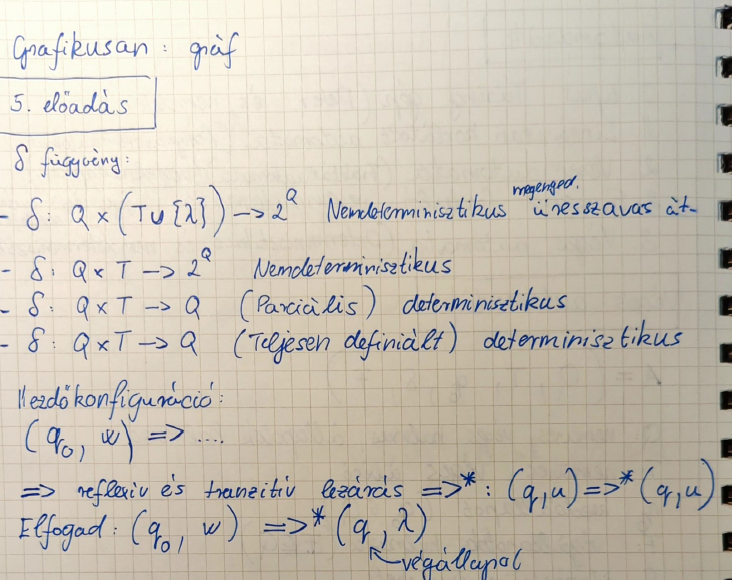 Grafikusan: gráf
5. előadás
δ függvény:
- δ: Q × (T ∪ {λ}) -> 2^Q Nemdeterminisztikus megenged. üresszavas át-
- δ: Q × T -> 2^Q Nemdeterminisztikus
- δ: Q × T -> Q (Parciális) determinisztikus
- δ: Q × T -> Q (Teljesen definiált) determinisztikus
Kezdőkonfiguráció:
(q₀, w) => ....
=> reflexív és tranzitív lezárás =>*: (q,u) =>* (q,u)
Elfogad: (q₀, w) =>* (q, λ)
végállapot